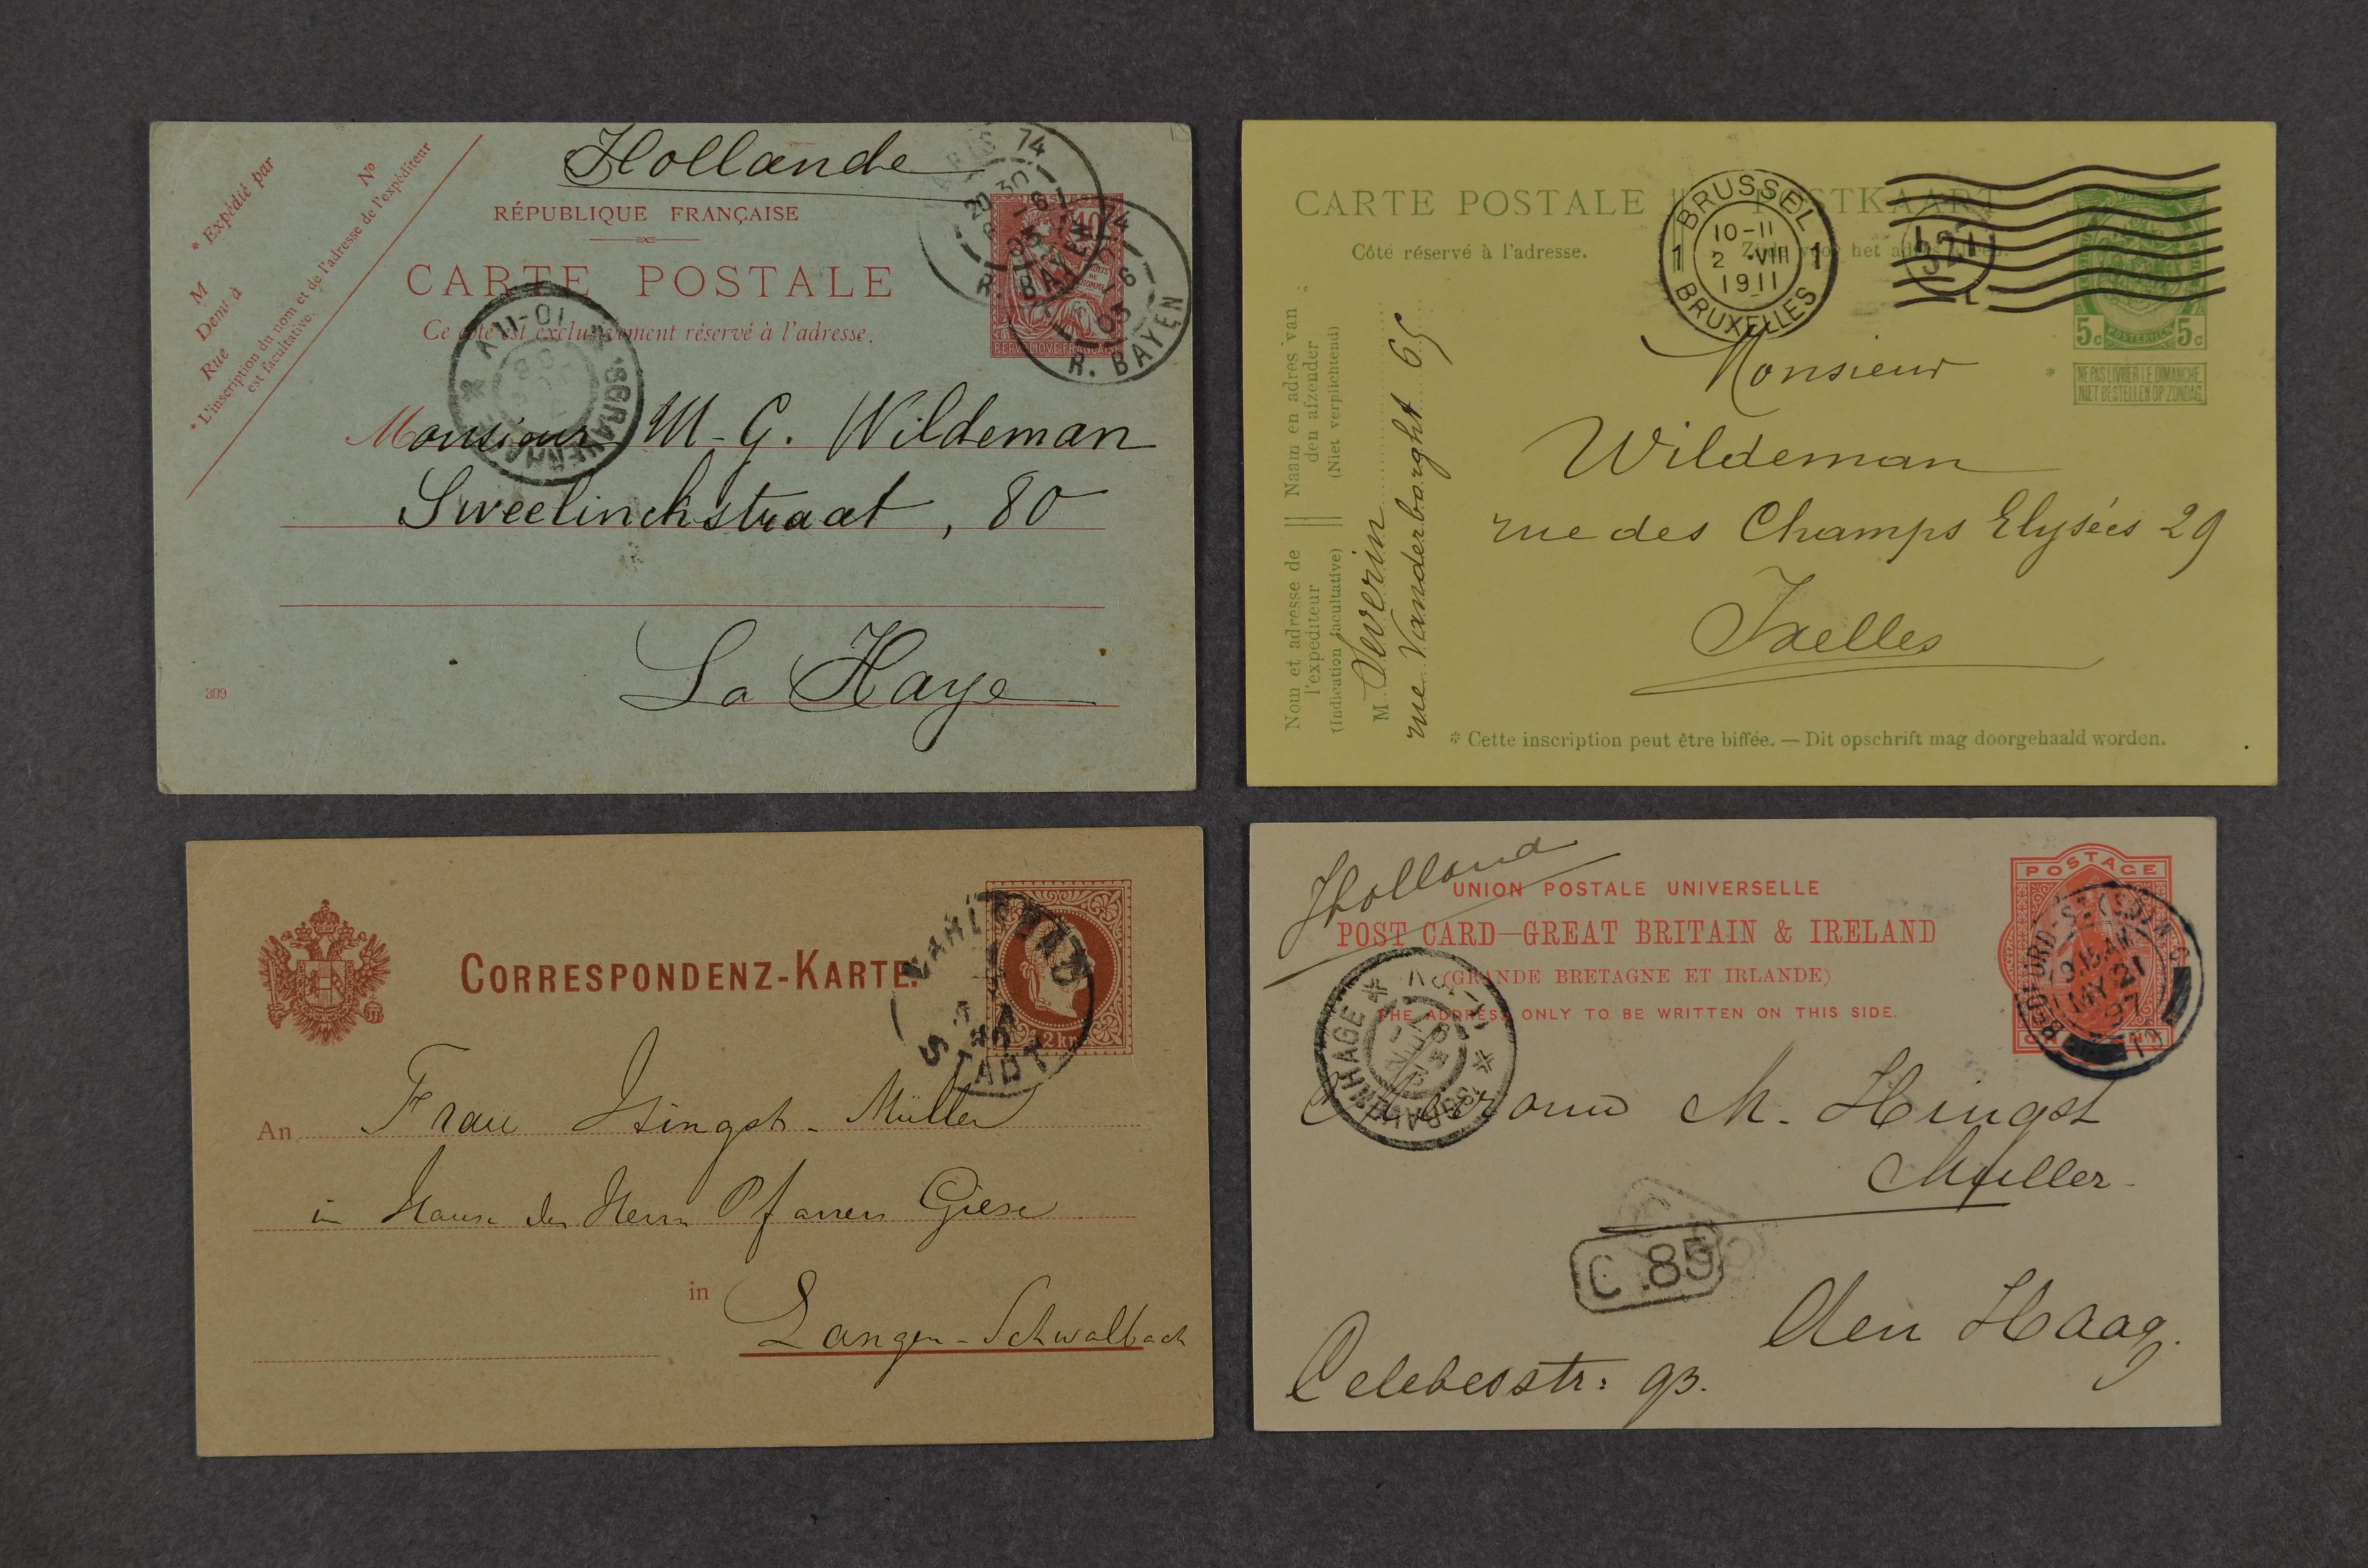 Hollande
RÉPUBLIQUE FRANÇAISE
CARTE POSTALE
Ce côté est exclusivement réservé à l'adresse.
* Expédié par
M
Demt à
Rue
No
* L'inscription du nom et de l'adresse de l'expéditeur
est facultative.
74
R. BAYEN
10
REPUBLIQUE FRANÇAISE
74
03
R. BAYEN
'SGRAVENHAGE
Monsieur M. G. Wildeman
Sweelinckstraat, 80
La Haye
309
CARTE POSTALE POSTKAART
Côté réservé à l'adresse.
Zijde voor het adres alleen.
BRUSSEL
10-11
2 VIII
1911
BRUXELLES
1 1
5c 5c
NE PAS LIVRER LE DIMANCHE.
NIET BESTELLEN OP ZONDAG.
Nom et adresse de
l'expéditeur
(Indication facultative)
Naam en adres van
den afzender
(Niet verplichtend)
M. Severin
rue Vanderborght 65
Monsieur
Wildeman
rue des Champs Elysées 29
Ixelles
* Cette inscription peut être biffée. — Dit opschrift mag doorgehaald worden.
CORRESPONDENZ-KARTE.
STADT
2 kr
An Frau Hingst-Müller
in Hause des Herrn Pfarrers Giese
in Langen-Schwalbach
Holland
UNION POSTALE UNIVERSELLE
POST CARD—GREAT BRITAIN & IRELAND
(GRANDE BRETAGNE ET IRLANDE)
THE ADDRESS ONLY TO BE WRITTEN ON THIS SIDE.
POSTAGE
BEDFORD-ST
9.15.AM
MY 21
97
'SGRAVENHAGE
M. Hingst
Muller
C.85
Den Haag.
Celebesstr: 93.